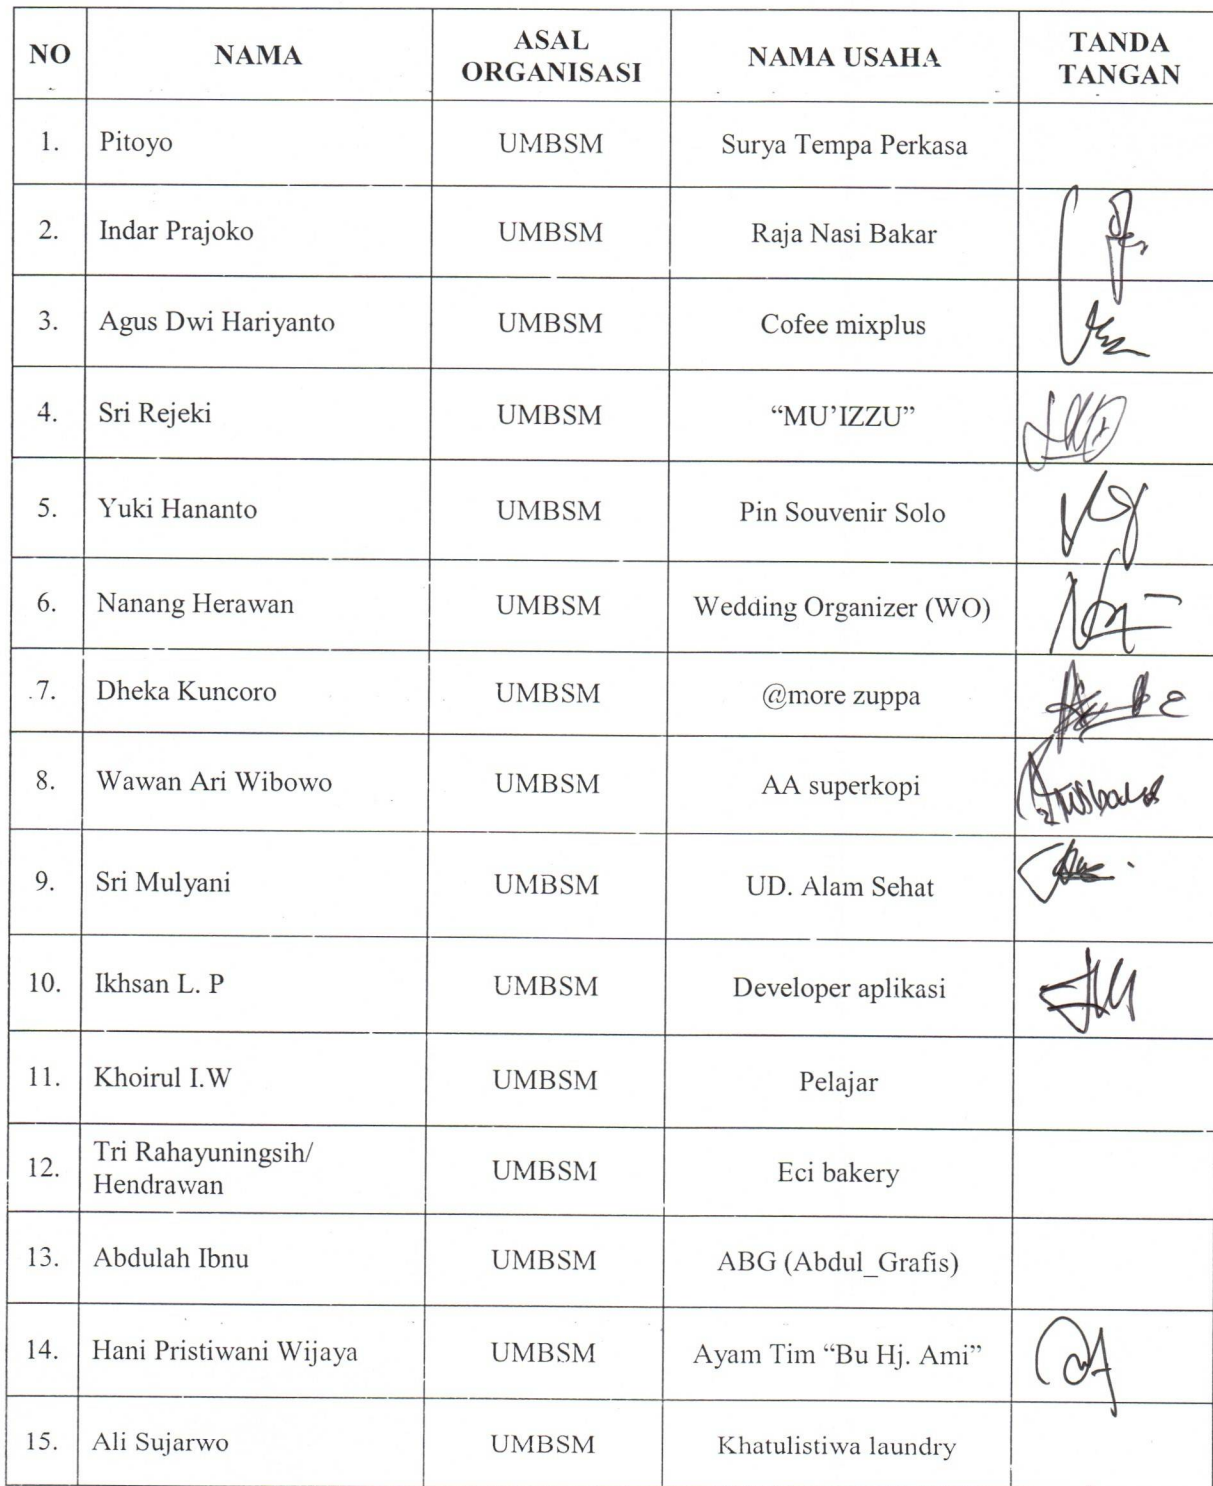 NO NAMA ASAL ORGANISASI NAMA USAHA TANDA TANGAN
1. Pitoyo UMBSM Surya Tempa Perkasa
2. Indar Prajoko UMBSM Raja Nasi Bakar
3. Agus Dwi Hariyanto UMBSM Cofee mixplus
4. Sri Rejeki UMBSM “MU’IZZU”
5. Yuki Hananto UMBSM Pin Souvenir Solo
6. Nanang Herawan UMBSM Wedding Organizer (WO)
7. Dheka Kuncoro UMBSM @more zuppa
8. Wawan Ari Wibowo UMBSM AA superkopi
9. Sri Mulyani UMBSM UD. Alam Sehat
10. Ikhsan L. P UMBSM Developer aplikasi
11. Khoirul I.W UMBSM Pelajar
12. Tri Rahayuningsih/ Hendrawan UMBSM Eci bakery
13. Abdulah Ibnu UMBSM ABG (Abdul_Grafis)
14. Hani Pristiwani Wijaya UMBSM Ayam Tim “Bu Hj. Ami”
15. Ali Sujarwo UMBSM Khatulistiwa laundry